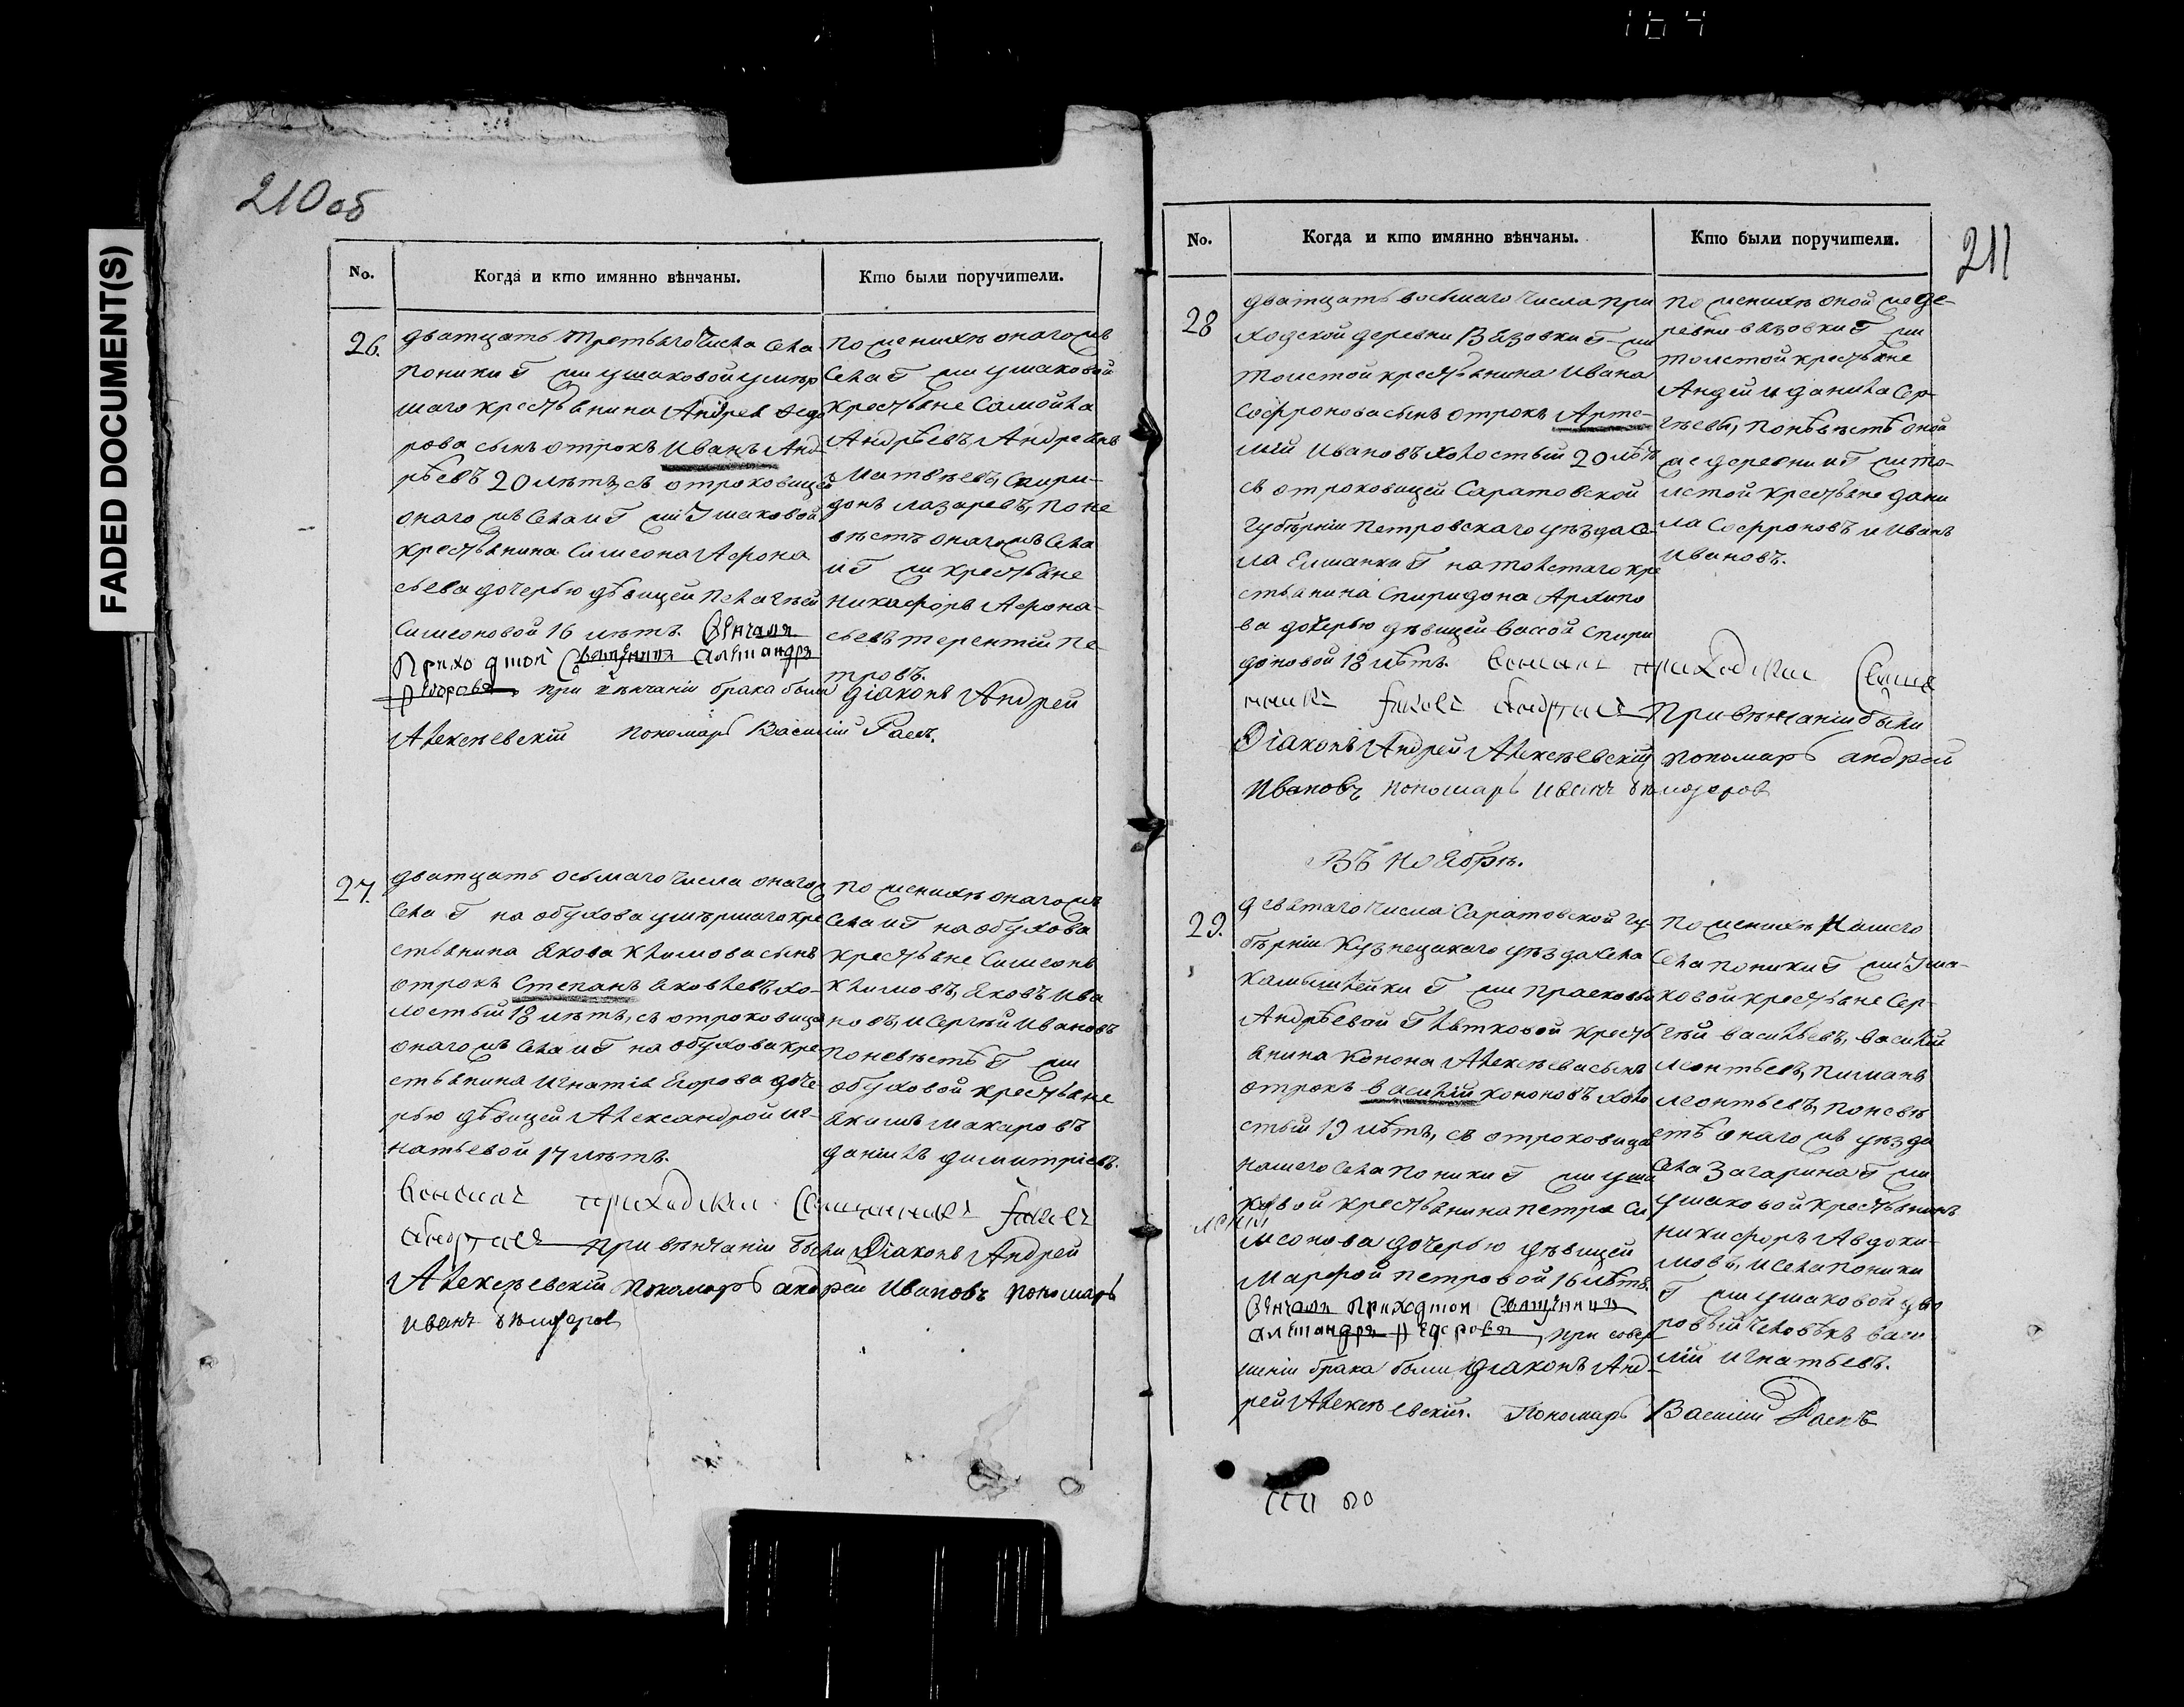 164
FADED DOCUMENT(S)
210 об
No.
Когда и кто имянно вѣнчаны.
Кто были поручители.
26.
дватцать третьяго числа села
поники Г ши ушаковой умер
шаго крестьянина Андрея Ѳедо
рова сынъ отрокъ Иванъ Анд
рѣевъ 20 лѣтъ, съ отроковицей
онаго жъ села и Г ши Ушаковой
крестьянина Симеона Афона
сьева дочерью дѣвицей Пелагѣей
Симеоновой 16 лѣтъ. Венчалъ
Приходской Священникъ Александръ
Федоровъ при вѣнчаніи брака были
Алексѣевскій пономарь Василій Раевъ.
по женихѣ онаго жъ
села Г ши ушаковой
крестьяне Самойла
Андрѣевъ, Андреянъ
Матвѣевъ, Спири-
донъ Лазаревъ, по не
вѣстѣ онаго жъ села
и Г ши крестьяне
Никифоръ Афона-
сьевъ терентій Пе
тровъ.
діаконъ Андрей
27.
дватцать осьмаго числа онаго ж
села Г на обухова умѣршаго кре
стьянина Якова Климова сынъ
отрокъ Степанъ Яковлевъ хо-
лостый 18 лѣтъ, съ отроковицей
онаго жъ села и Г на обухова кре
стьянина Игнатія Егорова доче
рью дѣвицей Александрой иг-
натьевой 17 лѣтъ.
Венчалъ приходскій Священникъ
при вѣнчаніи были Діаконъ Андрей
Алексѣевскій пономарь андрей Ивановъ пономарь
иванъ
по женихѣ онаго жъ
села и Г на обухова
крестьяне Симеонъ
Климовъ, Яковъ Ива
новъ, и Сергѣй Ивановъ
по невѣстѣ Г ши
обуховой крестьяне
Якимъ Макаровъ
данилъ димитріевъ.
211
No.
Когда и кто имянно вѣнчаны.
Кто были поручители.
28
дватцать восьмаго числа при
ходской деревни Вязовки Г ши
толстой крестьянина Ивана
Софронова сынъ отрокъ Арте-
мій Ивановъ холостый 20 лѣтъ
съ отроковицей Саратовской
губѣрніи Петровскаго уѣзда се-
ла Елшанки Г на толстаго кре
стьянина Спиридона Архипо
ва дочерью дѣвицей Вассой Спири
доновой 18 лѣтъ. Венчалъ приходскій Свяще
нникъ При вѣнчаніи были
Діаконъ Андрей Алексѣевскій пономарь андрей
Ивановъ пономарь иванъ
по женихѣ оной же де-
ревни вязовки Г ши
толстой крестьяне
Андей и данила Сер-
гѣевы, по невѣстѣ оной
же деревни и Г ши то-
лстой крестьяне дани
ла Софроновъ и Иванъ
Ивановъ.
Въ ноябрѣ.
29.
девятаго числа Саратовской гу-
бѣрніи Кузнецкаго уѣзда села
Камышлейки Г ши Прасковьи
Андрѣевой крестья
янина Конона Алексѣева сынъ
отрокъ василій Кононовъ холо
стый 19 лѣтъ, съ отроковицей
нашего села поники Г ши уша
ковой крестьянина петра Си
меонова дочерью дѣвицей
Марфой петровой 16 лѣтъ.
Венчалъ Приходской Священникъ
Александръ Федоровъ при совер
шеніи брака были діаконъ Анд-
рей Алексѣевскій. Пономарь Василій Раевъ
по женихѣ Нашего
села поники Г ши Уша-
ковой крестьяне Сер-
гѣй васильевъ, василій
леонтьевъ, пиманъ
леонтьевъ, по невѣ
стѣ онаго жъ уѣзда
села Загарина Г ши
ушаковой крестьянинъ
никифоръ Авдоки-
мовъ, и села поники
Г ши ушаковой дво
ровый человѣкъ васи
лій игнатьевъ.